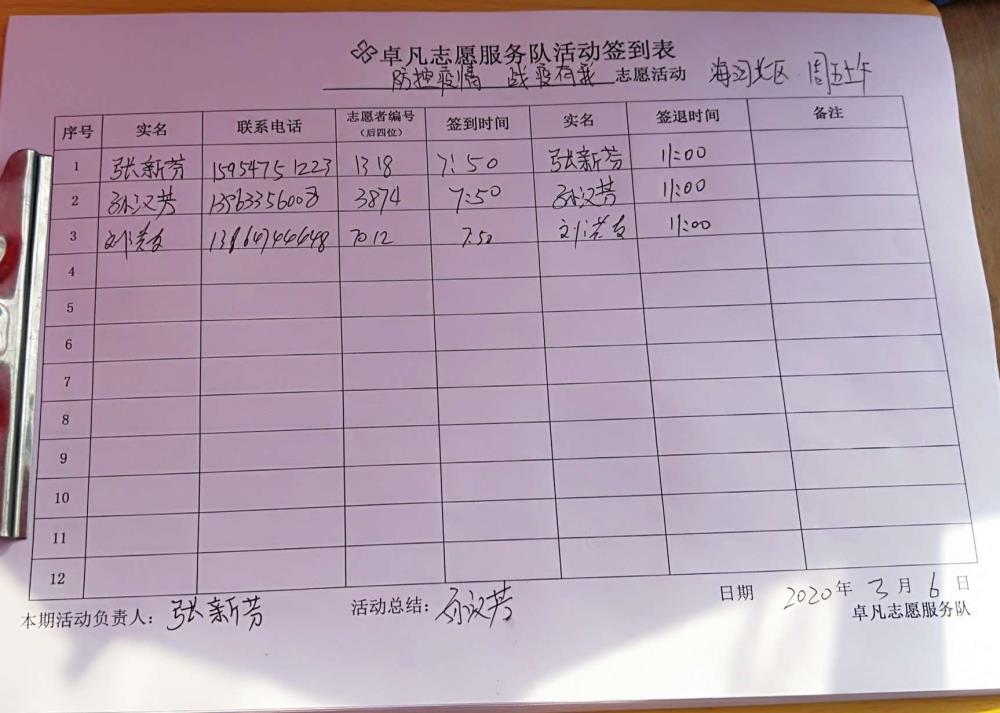 卓凡志愿服务队活动签到表
防控疫情 战疫有我 志愿活动 海河北区 周五上午
序号 实名 联系电话 志愿者编号（后四位） 签到时间 实名 签退时间 备注
1 张新芳 15954751223 1318 7:50 张新芳 11:00
2 孙汉芳 13963356008 3874 7:50 孙汉芳 11:00
3 7012 7:50 11:00
4
5
6
7
8
9
10
11
12
本期活动负责人：张新芳 活动总结：孙汉芳 日期 2020年3月6日
卓凡志愿服务队